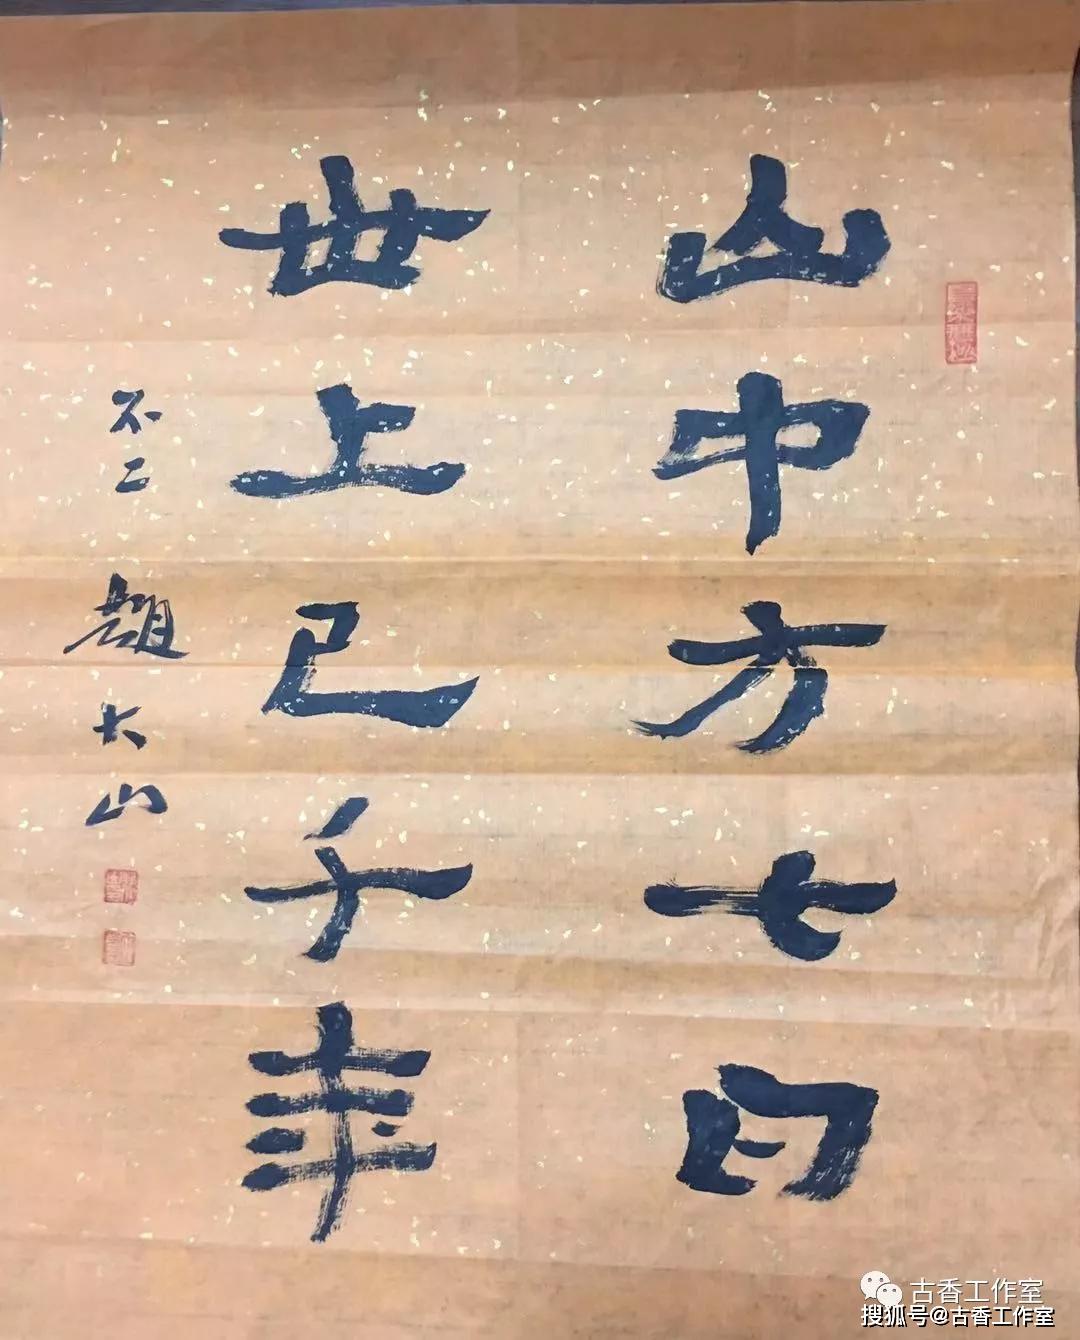 山中方七日
世上已千年
不二 趙大山
古香工作室
搜狐号@古香工作室